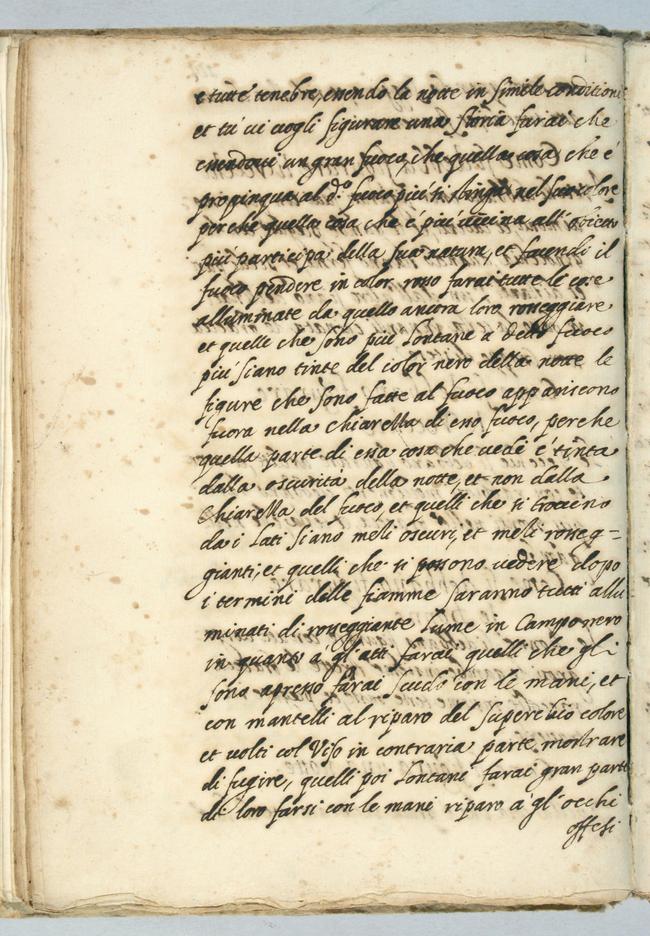 e tutte tenebre, essendo la notte in simile conditione
et tu vi vogli figurare una storia farai che
essendovi un gran fuoco, che quella cosa che è
propinqua al d.º fuoco piu si tinga nel suo colore
perche quella cosa che è piu vicina all' obietto
piu participa della sua natura, et facendo il
fuoco pendere in color rosso farai tutte le cose
alluminate da quello ancora loro rosseggiare
et quelle che sono piu lontane a detto fuoco
piu siano tinte del color nero della notte le
figure che sono fatte al fuoco appariscono
scure nella chiarezza di esso fuoco, perche
quella parte di essa cosa che vedi è tinta
dalla oscurità della notte, et non dalla
chiarezza del fuoco, et quelli che si trovino
da i lati siano mezi oscuri, et mezi rosseg=
gianti, et quelli che si possono vedere dopo
i termini delle fiamme saranno tutti allu
minati di rosseggiante lume in campo nero
in quanto a gl' atti farai quelli che gli
sono apresso farai scudo con le mani, et
con mantelli al riparo del superchio colore
et volti col viso in contraria parte mostrare
di fugire, quelli poi lontani farai gran parte
di loro farsi con le mani riparo a gl' occhi
offesi